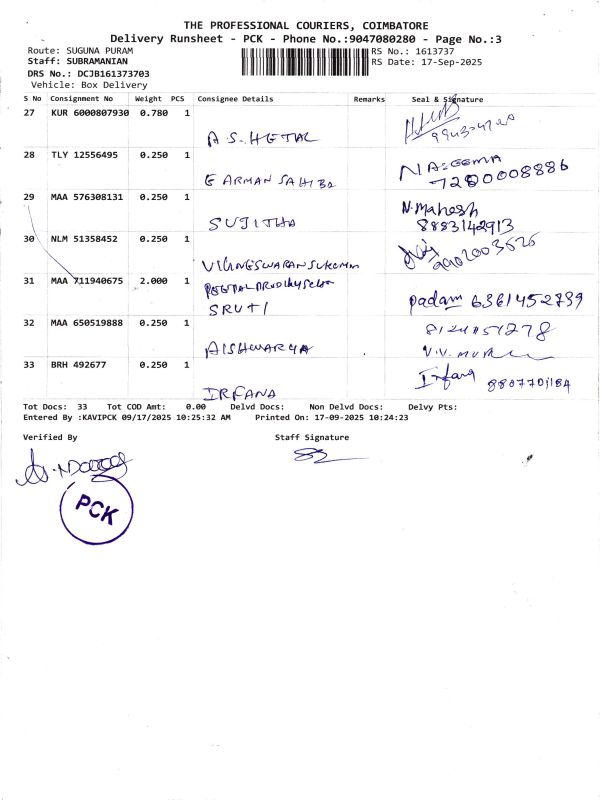 THE PROFESSIONAL COURIERS, COIMBATORE
Delivery Runsheet - PCK - Phone No.:9047080280 - Page No.:3
Route: SUGUNA PURAM
RS No.: 1613737
Staff: SUBRAMANIAN
RS Date: 17-Sep-2025
DRS No.: DCJB161373703
Vehicle: Box Delivery
S No Consignment No Weight PCS Consignee Details Remarks Seal & Signature
27 KUR 6000807930 0.780 1
A.S. HETAL
28 TLY 12556495 0.250 1
E ARMAN SAHIBA NAZEEMA
7280008886
29 MAA 576308131 0.250 1
SUJITHA N.Mahesh
8883142913
30 NLM 51358452 0.250 1
VIGNESWARAN
31 MAA 711940675 2.000 1
SRUTI padam 6361452739
32 MAA 650519888 0.250 1
AISHWARYA
33 BRH 492677 0.250 1
IRFANA Irfana
Tot Docs: 33 Tot COD Amt: 0.00 Delvd Docs: Non Delvd Docs: Delvy Pts:
Entered By :KAVIPCK 09/17/2025 10:25:32 AM Printed On: 17-09-2025 10:24:23
Verified By Staff Signature
PCK